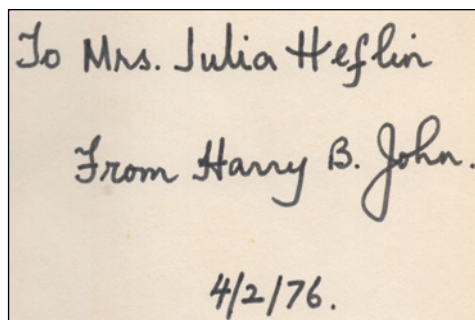 To Mrs. Julia Heflin
From Harry B. John.
4/2/76.